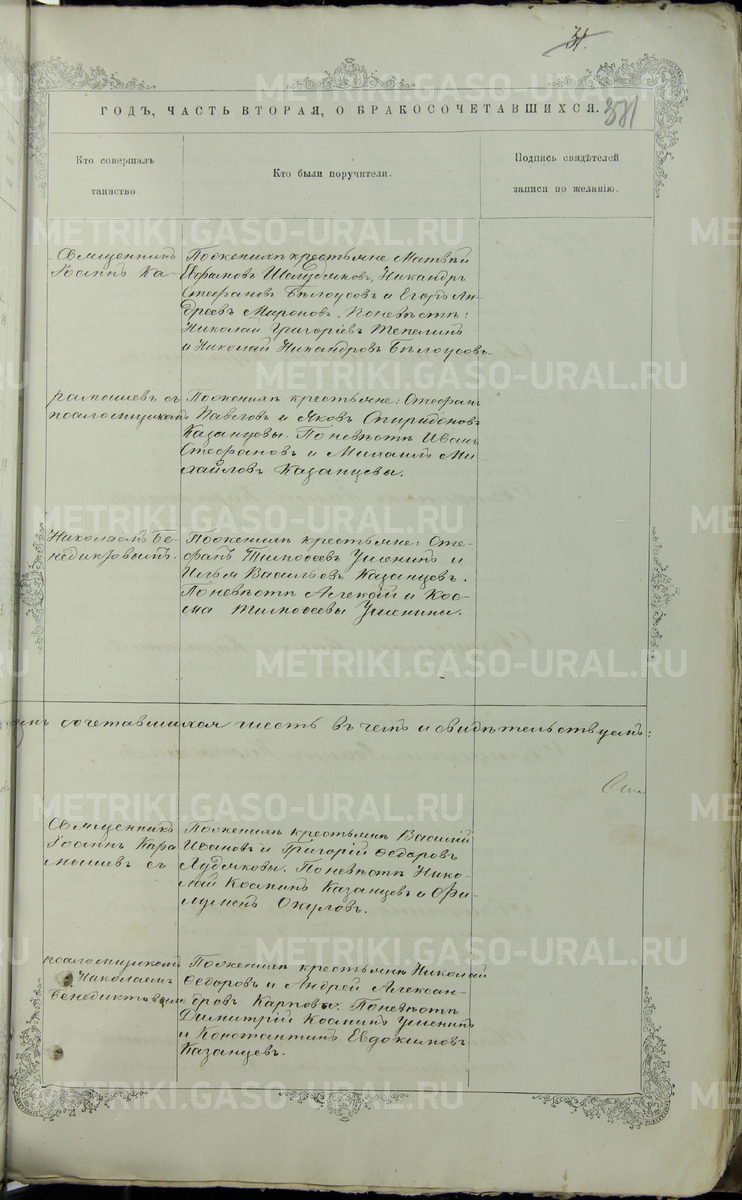 31.
ГОДЪ, ЧАСТЬ ВТОРАЯ, О БРАКОСОЧЕТАВШИХСЯ.
381
Кто совершалъ
таинство.
Кто были поручители.
Подпись свидѣтелей
записи по желанію.
Священникъ
Іоаннъ Ка-
По женихѣ крестьяне Матвѣй
Шелудяковъ, Никандръ
Стефановъ Бѣлоусовъ и Егоръ Ан-
дреевъ Мироновъ. По невѣстѣ:
Николай Григорьевъ Тепелинъ
и Николай Никандровъ Бѣлоусовъ.
рамышевъ съ
псаломщикомъ
По женихѣ крестьяне: Стефанъ
Павловъ и Яковъ Спиридоновъ
Казанцевы. По невѣстѣ Иванъ
Стефановъ и Михаилъ Ми-
хайловъ Казанцевы.
Николаемъ Бе-
недиктовымъ.
По женихѣ крестьяне: Сте-
фанъ Тимоѳеевъ Уженинъ и
Илья Васильевъ Казанцевъ.
По невѣстѣ Алексѣй и Кос-
ма Тимоѳеевы Уженины.
сочетавшихся шесть въ чемъ и свидѣтельствуемъ:
Священникъ
Іоаннъ Кара
мышевъ съ
По женихѣ крестьяне Василій
Ивановъ и Григорій Ѳедоровъ
Лудяковы. По невѣстѣ Нико-
лай Косминъ Казанцевъ и Фи-
Окуловъ.
псаломщикомъ
Николаемъ
Бенедиктовымъ
По женихѣ крестьяне Николай
Ѳедоровъ и Андрей Алексан-
дровъ Карповы. По невѣстѣ
Димитрій Косминъ Уженинъ
и Константинъ Евдокимовъ
Казанцевъ.
METRIKI.GASO-URAL.RU